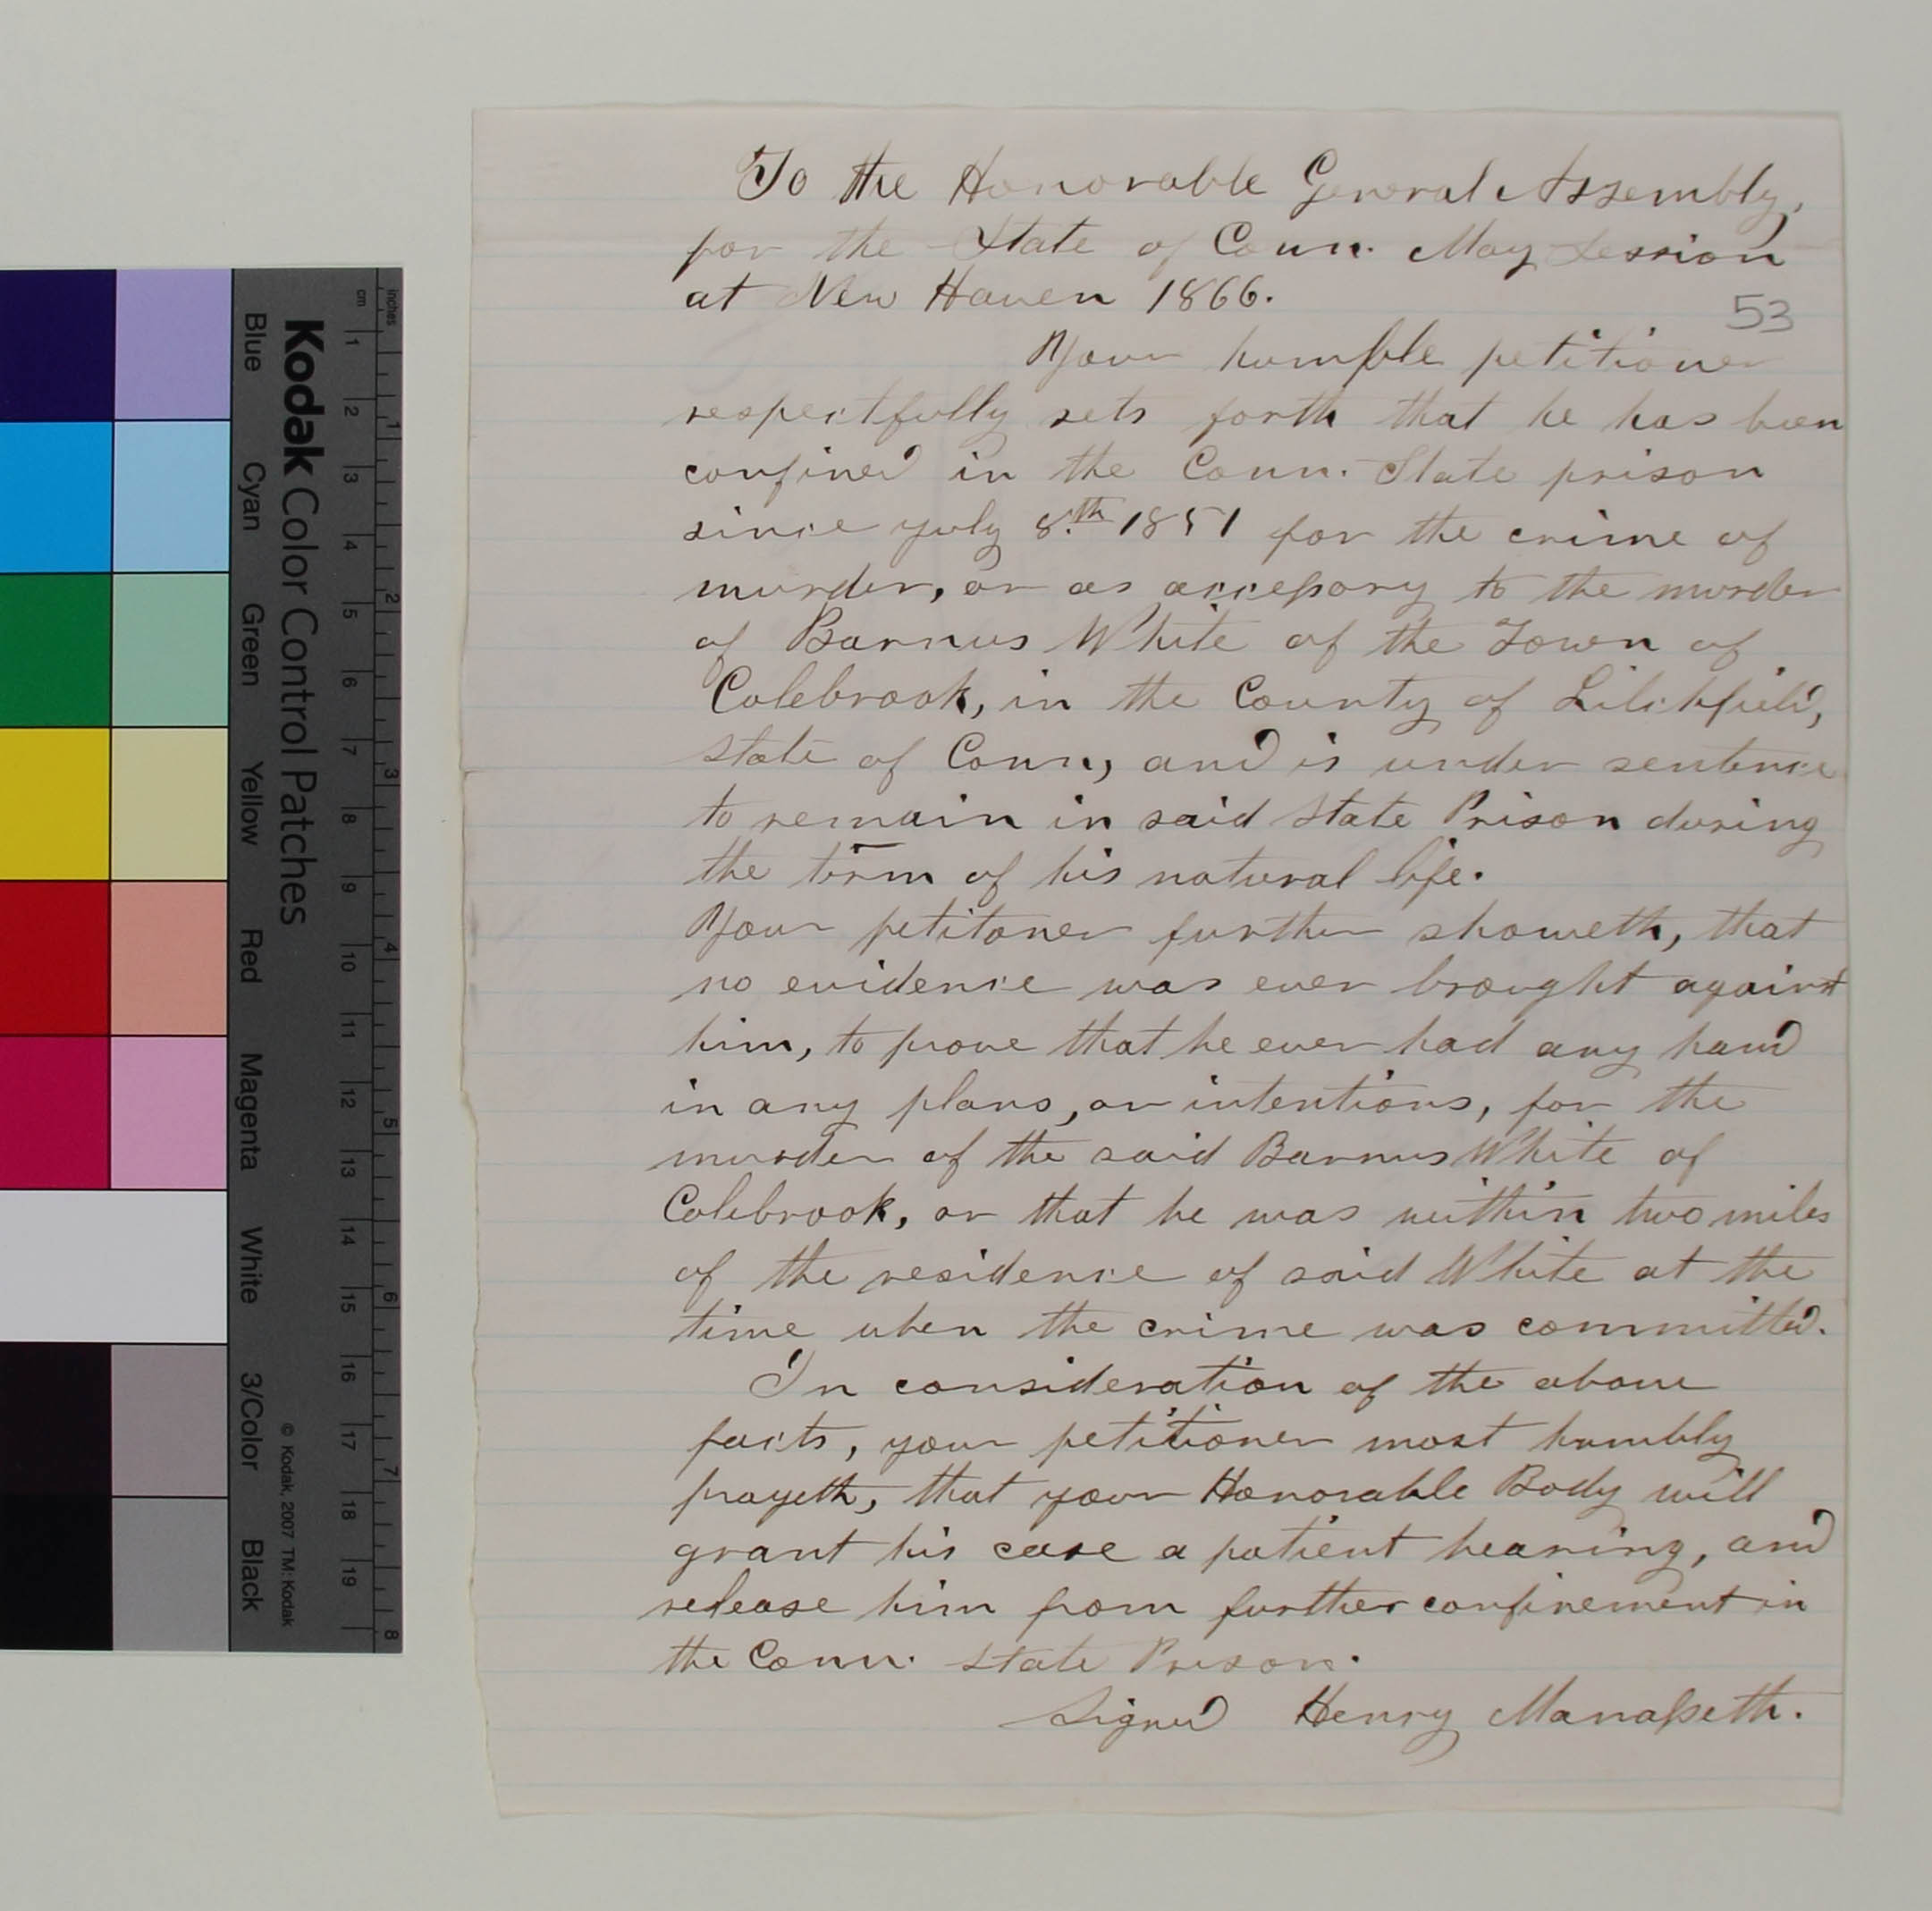 To the Honorable General Assembly,
for the State of Conn. May Session
at New Haven 1866.
53
Your humble petitioner
respectfully sets forth that he has been
confined in the Conn. State prison
since july 8.th 1851 for the crime of
murder, or as accessory to the murder
of Barnus White of the Town of
Colebrook, in the County of Litchfield,
state of Conn, and is under sentence
to remain in said State Prison during
the term of his natural life.
Your petitoner further showeth, that
no evidence was ever brought against
him, to prove that he ever had any hand
in any plans, or intentions, for the
murder of the said Barnus White of
Colebrook, or that he was within two miles
of the residence of said White at the
time when the crime was committed.
In consideration of the above
facts, your petitioner most humbly
prayeth, that your Honorable Body will
grant his case a patient hearing, and
release him from further confinement in
the Conn. State Prison.
Signed Henry Manasseth.
Kodak Color Control Patches
Blue Cyan Green Yellow Red Magenta White 3/Color Black
© Kodak, 2007 TM: Kodak
inches 1 2 3 4 5 6 7 8
cm 1 2 3 4 5 6 7 8 9 10 11 12 13 14 15 16 17 18 19